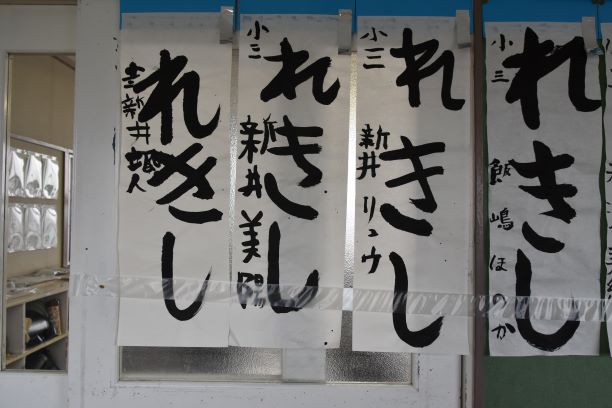 れきし
小三
飯嶋ほのか
れきし
小三
新井リュウ
れきし
小三
新井美陽
れきし
新井